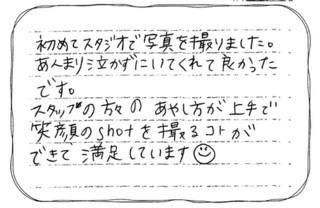 初めてスタジオで写真を撮りました。
あんまり泣かずにいてくれて良かった
です。
スタッフの方々の あやし方が上手で
笑顔のshotを撮るコトが
できて 満足しています☺